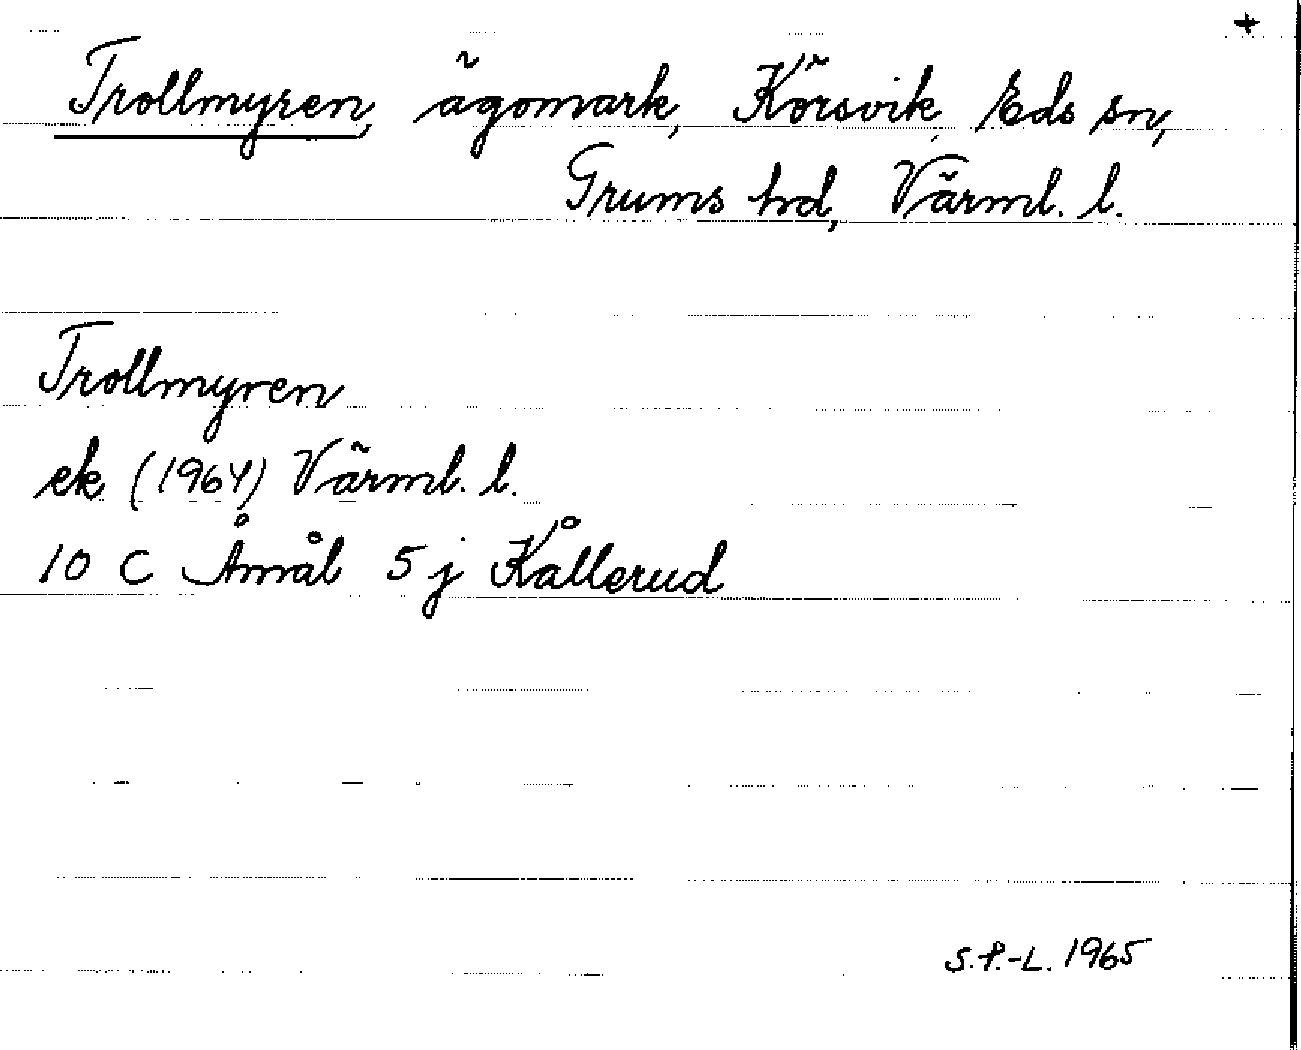 +
Trollmyren, ägomark, Körsvik, Eds sn,
Grums hd, Värml. l.
Trollmyren
ek (1964) Värml. l.
10 C Åmål 5 j Kållerud
S.P.-L. 1965